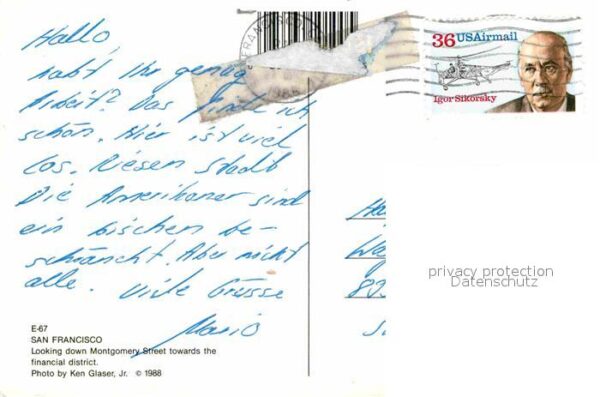 Hallo,
habt Ihr genug
Arbeit? Das finde ich
schön. Hier ist viel
los. Riesen Stadt
Die Amerikaner sind
ein bischen be-
schränckt. Aber nicht
alle. Viele Grüsse
Mario
E-67
SAN FRANCISCO
Looking down Montgomery Street towards the
financial district.
Photo by Ken Glaser, Jr. © 1988
FRANCISCO
1988
36 USAirmail
Igor Sikorsky
privacy protection
Datenschutz